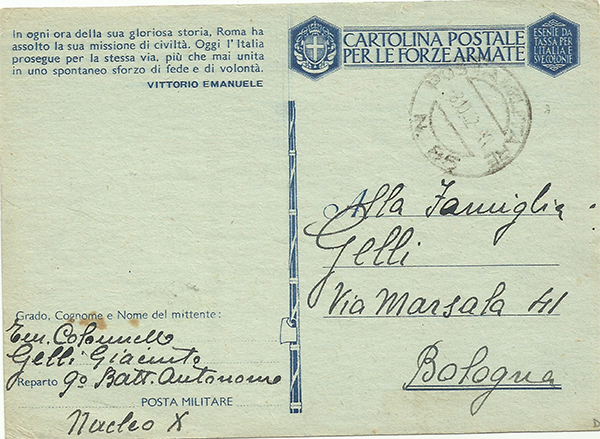 In ogni ora della sua gloriosa storia, Roma ha
assolto la sua missione di civiltà. Oggi l'Italia
prosegue per la stessa via, più che mai unita
in uno spontaneo sforzo di fede e di volontà.
VITTORIO EMANUELE
CARTOLINA POSTALE
PER LE FORZE ARMATE
ESENTE DA
TASSA PER
L'ITALIA
E SVE COLONIE
POSTA MILITARE
N.
Alla Famiglia
Gelli
Via Marsala 41
Bologna
Grado, Cognome e Nome del mittente:
Ten. Colonnello
Gelli Giacinto
Reparto 9º Batt. Autonomo
POSTA MILITARE
Nucleo X